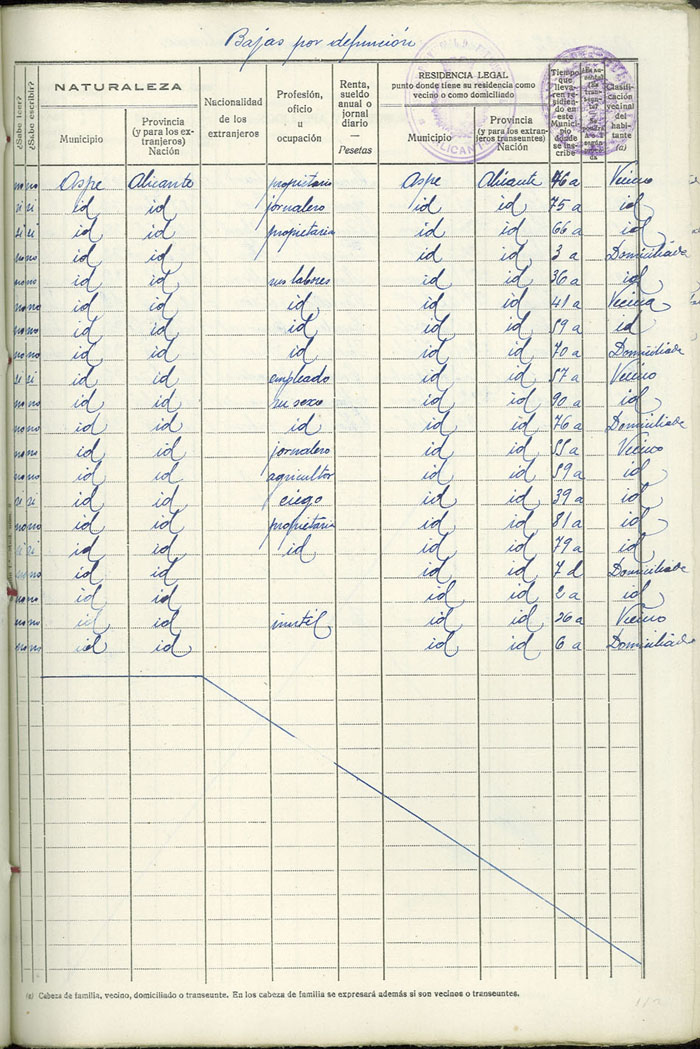 Bajas por defunción
¿Sabe leer?
¿Sabe escribir?
NATURALEZA
Municipio
Provincia (y para los extranjeros) Nación
Nacionalidad de los extranjeros
Profesión, oficio u ocupación
Renta, sueldo anual o jornal diario — Pesetas
RESIDENCIA LEGAL
punto donde tiene su residencia como vecino o como domiciliado
Municipio
Provincia (y para los extranjeros transeuntes) Nación
Tiempo que lleva residiendo en este Municipio donde se inscribe
Clasificación vecinal del habitante (a)
ALICANTE
no no Aspe Alicante propietario Aspe Alicante 46 a Vecino
si si id id jornalero id id 75 a id
si si id id propietaria id id 66 a id
no no id id id id 3 a Domiciliada
no no id id sus labores id id 36 a id
no no id id id id id 41 a Vecina
no no id id id id id 59 a id
no no id id id id id 70 a Domiciliada
si si id id empleado id id 57 a Vecino
no no id id su sexo id id 90 a id
no no id id id id id 76 a Domiciliada
no no id id jornalero id id 55 a Vecino
no no id id agricultor id id 59 a id
si si id id ciego id id 39 a id
no no id id propietaria id id 81 a id
si si id id id id id 79 a id
no no id id id id 7 d Domiciliada
no no id id id id 2 a id
no no id id inutil id id 26 a Vecino
no no id id id id 6 a Domiciliada
(a) Cabeza de familia, vecino, domiciliado o transeunte. En los cabeza de familia se expresará además si son vecinos o transeuntes.